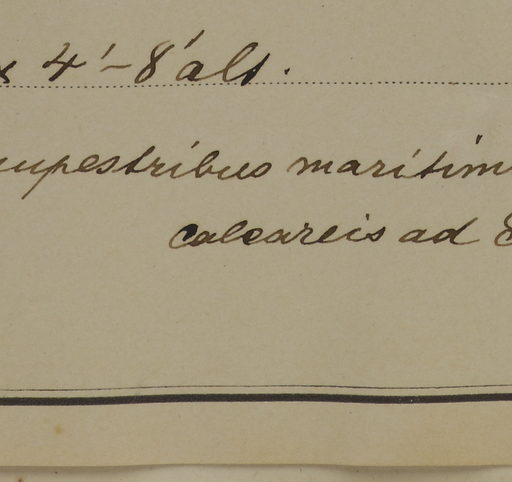 x 4'-8' alt.
rupestribus maritim
calcareis ad